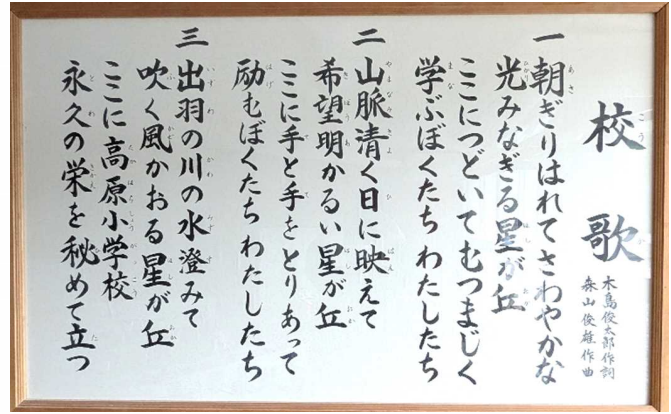 校歌
木島俊太郎作詞
森山俊雄作曲
一 朝ぎりはれてさわやかな
光みなぎる星が丘
ここにつどいてむつまじく
学ぶぼくたち わたしたち
二 山脈清く日に映えて
希望明かるい星が丘
ここに手と手をとりあって
励むぼくたち わたしたち
三 出羽の川の水澄みて
吹く風かおる星が丘
ここに高原小学校
永久の栄を秘めて立つ